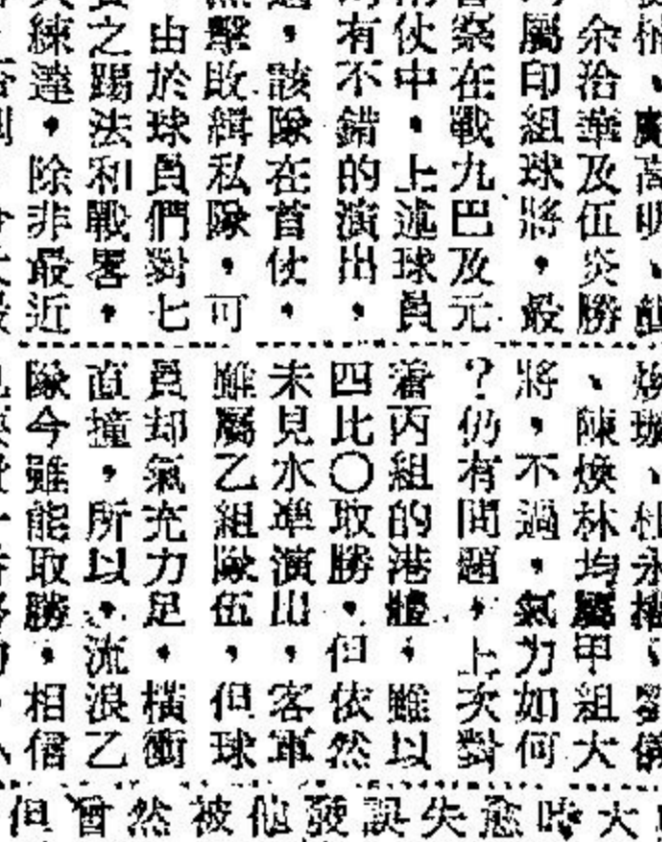 余洽華及伍炎勝
屬印組球將,最
察在戰九巴及元
仗中,上述球員
有不錯的演出,
,該隊在首仗,
擊敗緝私隊,可
由於球員們對七
之踢法和戰畧,
練達,除非最近
、陳煥林均屬甲組大
將,不過,氣力如何
?仍有問題,上次對
着丙組的港體,雖以
四比〇取勝,但依然
未見水準演出,客軍
雖屬乙組隊伍,但球
員却氣充力足,橫衝
直撞,所以,流浪乙
隊今雖能取勝,相信
大
時
愈
失
誤
發
他
被
然
曾
但